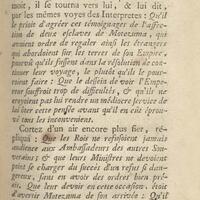 moit, il se tourna vers lui, & lui dit,
par les mêmes voyes des Interpretes: Qu'il
le prioit d'agréer ces témoignages de l'affec-
tion de deux esclaves de Motezuma, qui
avoient ordre de regaler ainsi les étrangers
qui abordoient sur les terres de son Empire,
pourvû qu'ils fussent dans la résolution de con-
tinuer leur voyage, le plutôt qu'ils le pour-
roient faire: Que le dessein de voir l'Empe-
reur souffroit trop de difficultés, & qu'ils ne
croyoient pas lui rendre un médiocre service de
lui ôter cette pensée avant qu'il en eût éprou-
vé tous les inconveniens.
Cortez d'un air encore plus fier, ré-
pliqua: Que les Rois ne refusoient jamais
audience aux Ambassadeurs des autres Sou-
verains; & que leurs Ministres ne devoient
point se charger du succès d'un refus si dan-
gereux, sans en avoir des ordres bien pré-
cis. Que leur devoir en cette occasion, étoit
d'avertir Motezuma de son arrivée: Qu'il